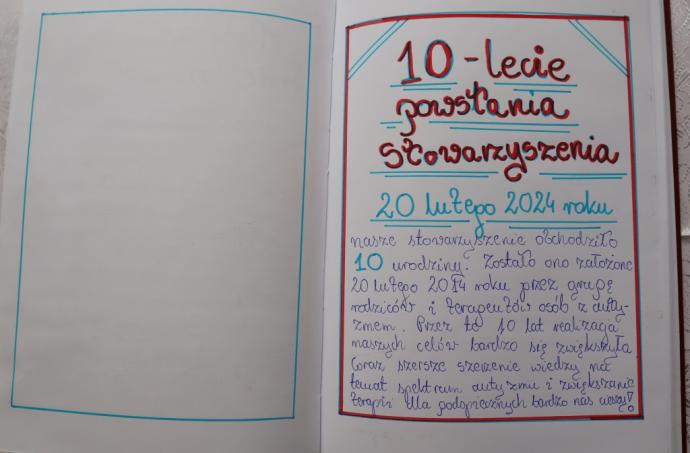 10-lecie
powstania
stowarzyszenia
20 lutego 2024 roku
nasze stowarzyszenie obchodziło
10 urodziny. Zostało ono założone
20 lutego 2014 roku przez grupę
rodziców i terapeutów osób z auty-
zmem. Przez to 10 lat realizacja
naszych celów bardzo się zwiększyła
Coraz szersze szerzenie wiedzy na
temat spektrum autyzmu i zwiększanie
terapii dla podopiecznych bardzo nas cieszy!